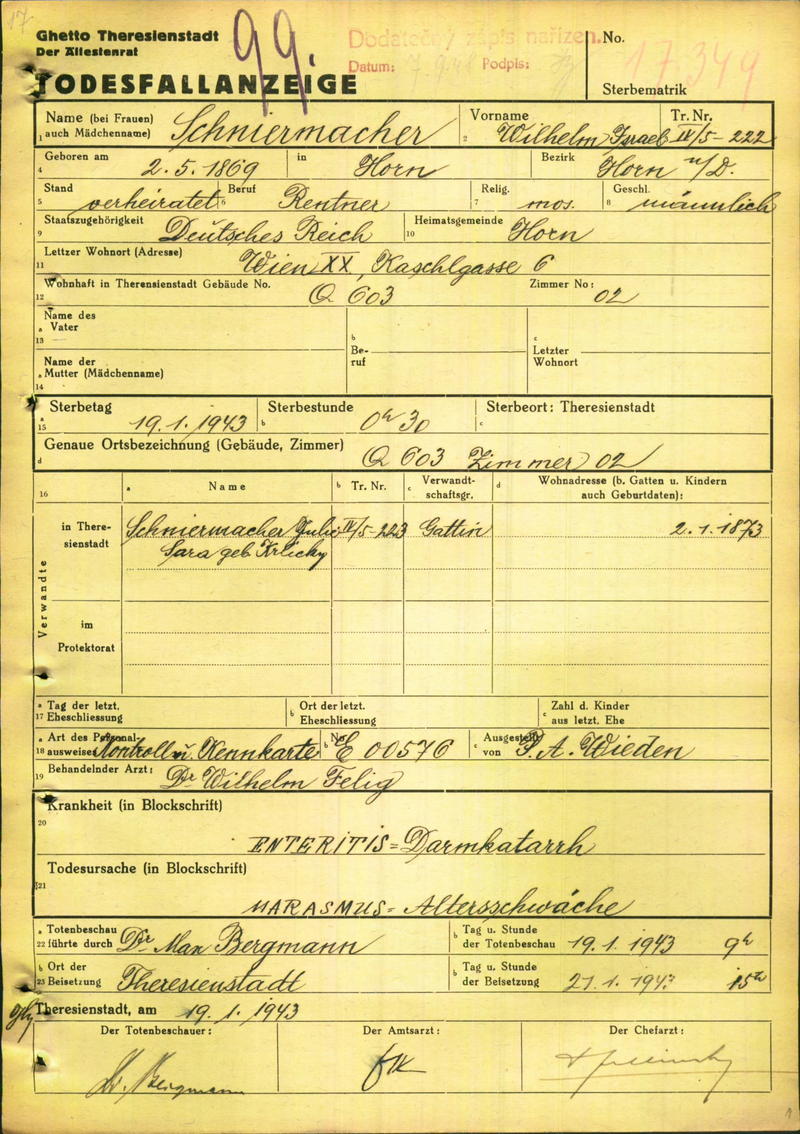 17
Ghetto Theresienstadt
Der Ältestenrat
99.
Dodatečný zápis nařízen.
Datum: Podpis:
No.
17349
TODESFALLANZEIGE
Sterbematrik
Name (bei Frauen)
1 auch Mädchenname) Schniermacher
Vorname
2 Wilhelm Israel
Tr. Nr.
IV/5-222
Geboren am
4 2.5.1869 in Horn Bezirk Horn n/D.
Stand
5 verheiratet
Beruf
6 Rentner
Relig.
7 mos.
Geschl.
8 männlich
Staatszugehörigkeit
9 Deutsches Reich
Heimatsgemeinde
10 Horn
Lettzer Wohnort (Adresse)
11 Wien XX, Kaschlgasse 6
Wohnhaft in Therensienstadt Gebäude No. Zimmer No:
12 Q 603 02
Name des
a Vater
13
b
Be-
ruf
c
Letzter
Wohnort
Name der
a Mutter (Mädchenname)
14
a Sterbetag
15 19.1.1943
Sterbestunde
b 0h 30
Sterbeort: Theresienstadt
c
Genaue Ortsbezeichnung (Gebäude, Zimmer)
d Q 603 Zimmer 02
16
a Name
b Tr. Nr.
c Verwandt-
schaftsgr.
d Wohnadresse (b. Gatten u. Kindern
auch Geburtdaten):
Verwandte
in There-
sienstadt
Schniermacher Julie IV/5-223 Gattin 2.1.1873
Sara geb Krlicky
im
Protektorat
a Tag der letzt.
17 Eheschliessung
b Ort der letzt.
Eheschliessung
c Zahl d. Kinder
aus letzt. Ehe
a Art des Personal-
18 ausweises Kontroll u. Kennkarte
b No. E 00576
c Ausgestellt
von P. A. Wieden
Behandelnder Arzt:
19 Dr Wilhelm Felig
Krankheit (in Blockschrift)
20
ENTERITIS = Darmkatarrh
Todesursache (in Blockschrift)
21
MARASMUS = Altersschwäche
a Totenbeschau
22 führte durch Dr Max Bergmann
b Tag u. Stunde
der Totenbeschau 19.1.1943 9h
b Ort der
23 Beisetzung Theresienstadt
b Tag u. Stunde
der Beisetzung 21.1.1943 15h
Theresienstadt, am 19.1.1943
Der Totenbeschauer: Der Amtsarzt: Der Chefarzt:
Dr. Bergmann